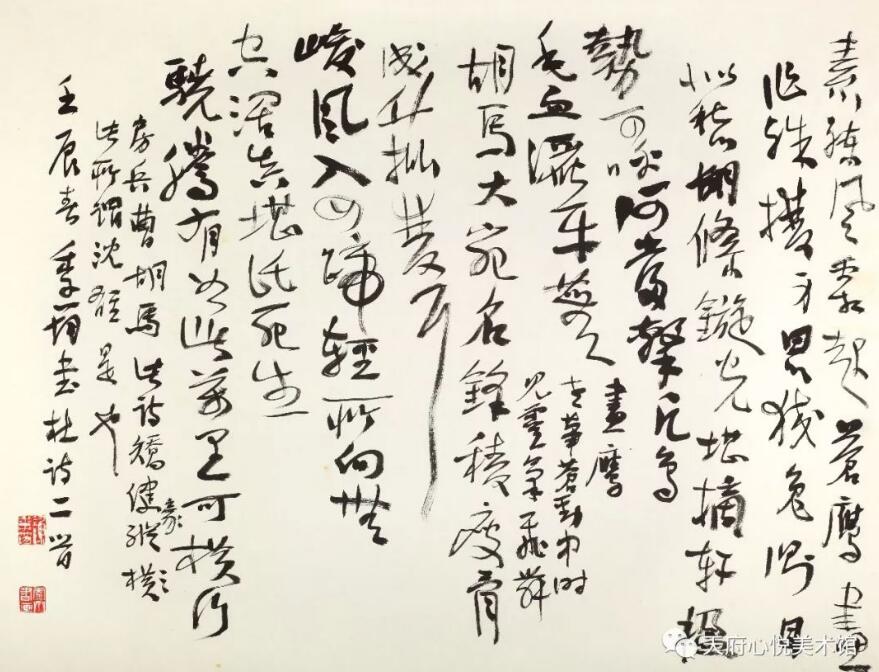 素練風霜起蒼鷹畫
作殊㩳身思狡兔側目
似愁胡絛鏇光堪摘軒楹
勢可呼何當擊凡鳥
毛血灑平蕪
畫鷹
老筆蒼勁中時
見靈氣飛舞
胡馬大宛名鋒稜瘦骨
成竹批雙耳
峻風入四蹄輕所向無
空闊真堪託死生
驍騰有如此萬里可橫行
房兵曹胡馬 此詩矯健豪縱橫
此所謂沈雄是也
壬辰春 書杜詩二首
天府心悦美术馆